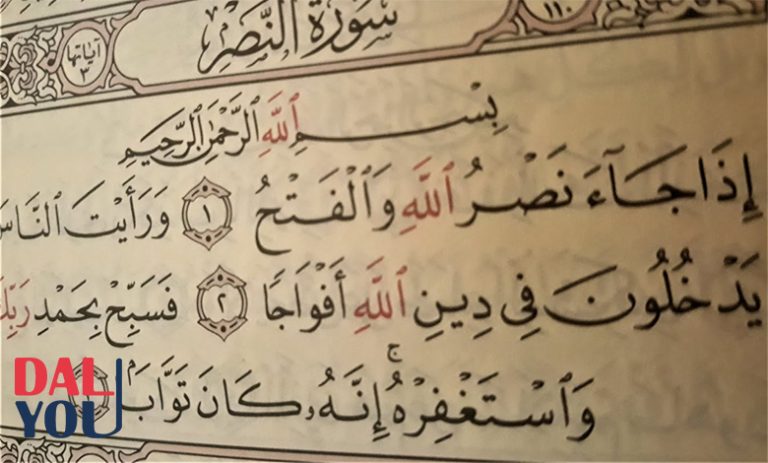 آياتها ٣
سُورَةُ النَّصْرِ
١١٠
بِسْمِ ٱللَّهِ ٱلرَّحْمَٰنِ ٱلرَّحِيمِ
إِذَا جَآءَ نَصْرُ ٱللَّهِ وَٱلْفَتْحُ ١ وَرَأَيْتَ ٱلنَّاسَ
يَدْخُلُونَ فِي دِينِ ٱللَّهِ أَفْوَاجًا ٢ فَسَبِّحْ بِحَمْدِ رَبِّكَ
وَٱسْتَغْفِرْهُ ۚ إِنَّهُۥ كَانَ تَوَّابَۢا
DAL
YOU